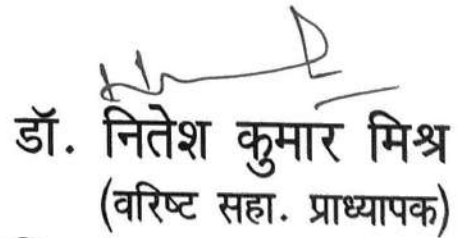 डॉ. नितेश कुमार मिश्र
(वरिष्ट सहा. प्राध्यापक)